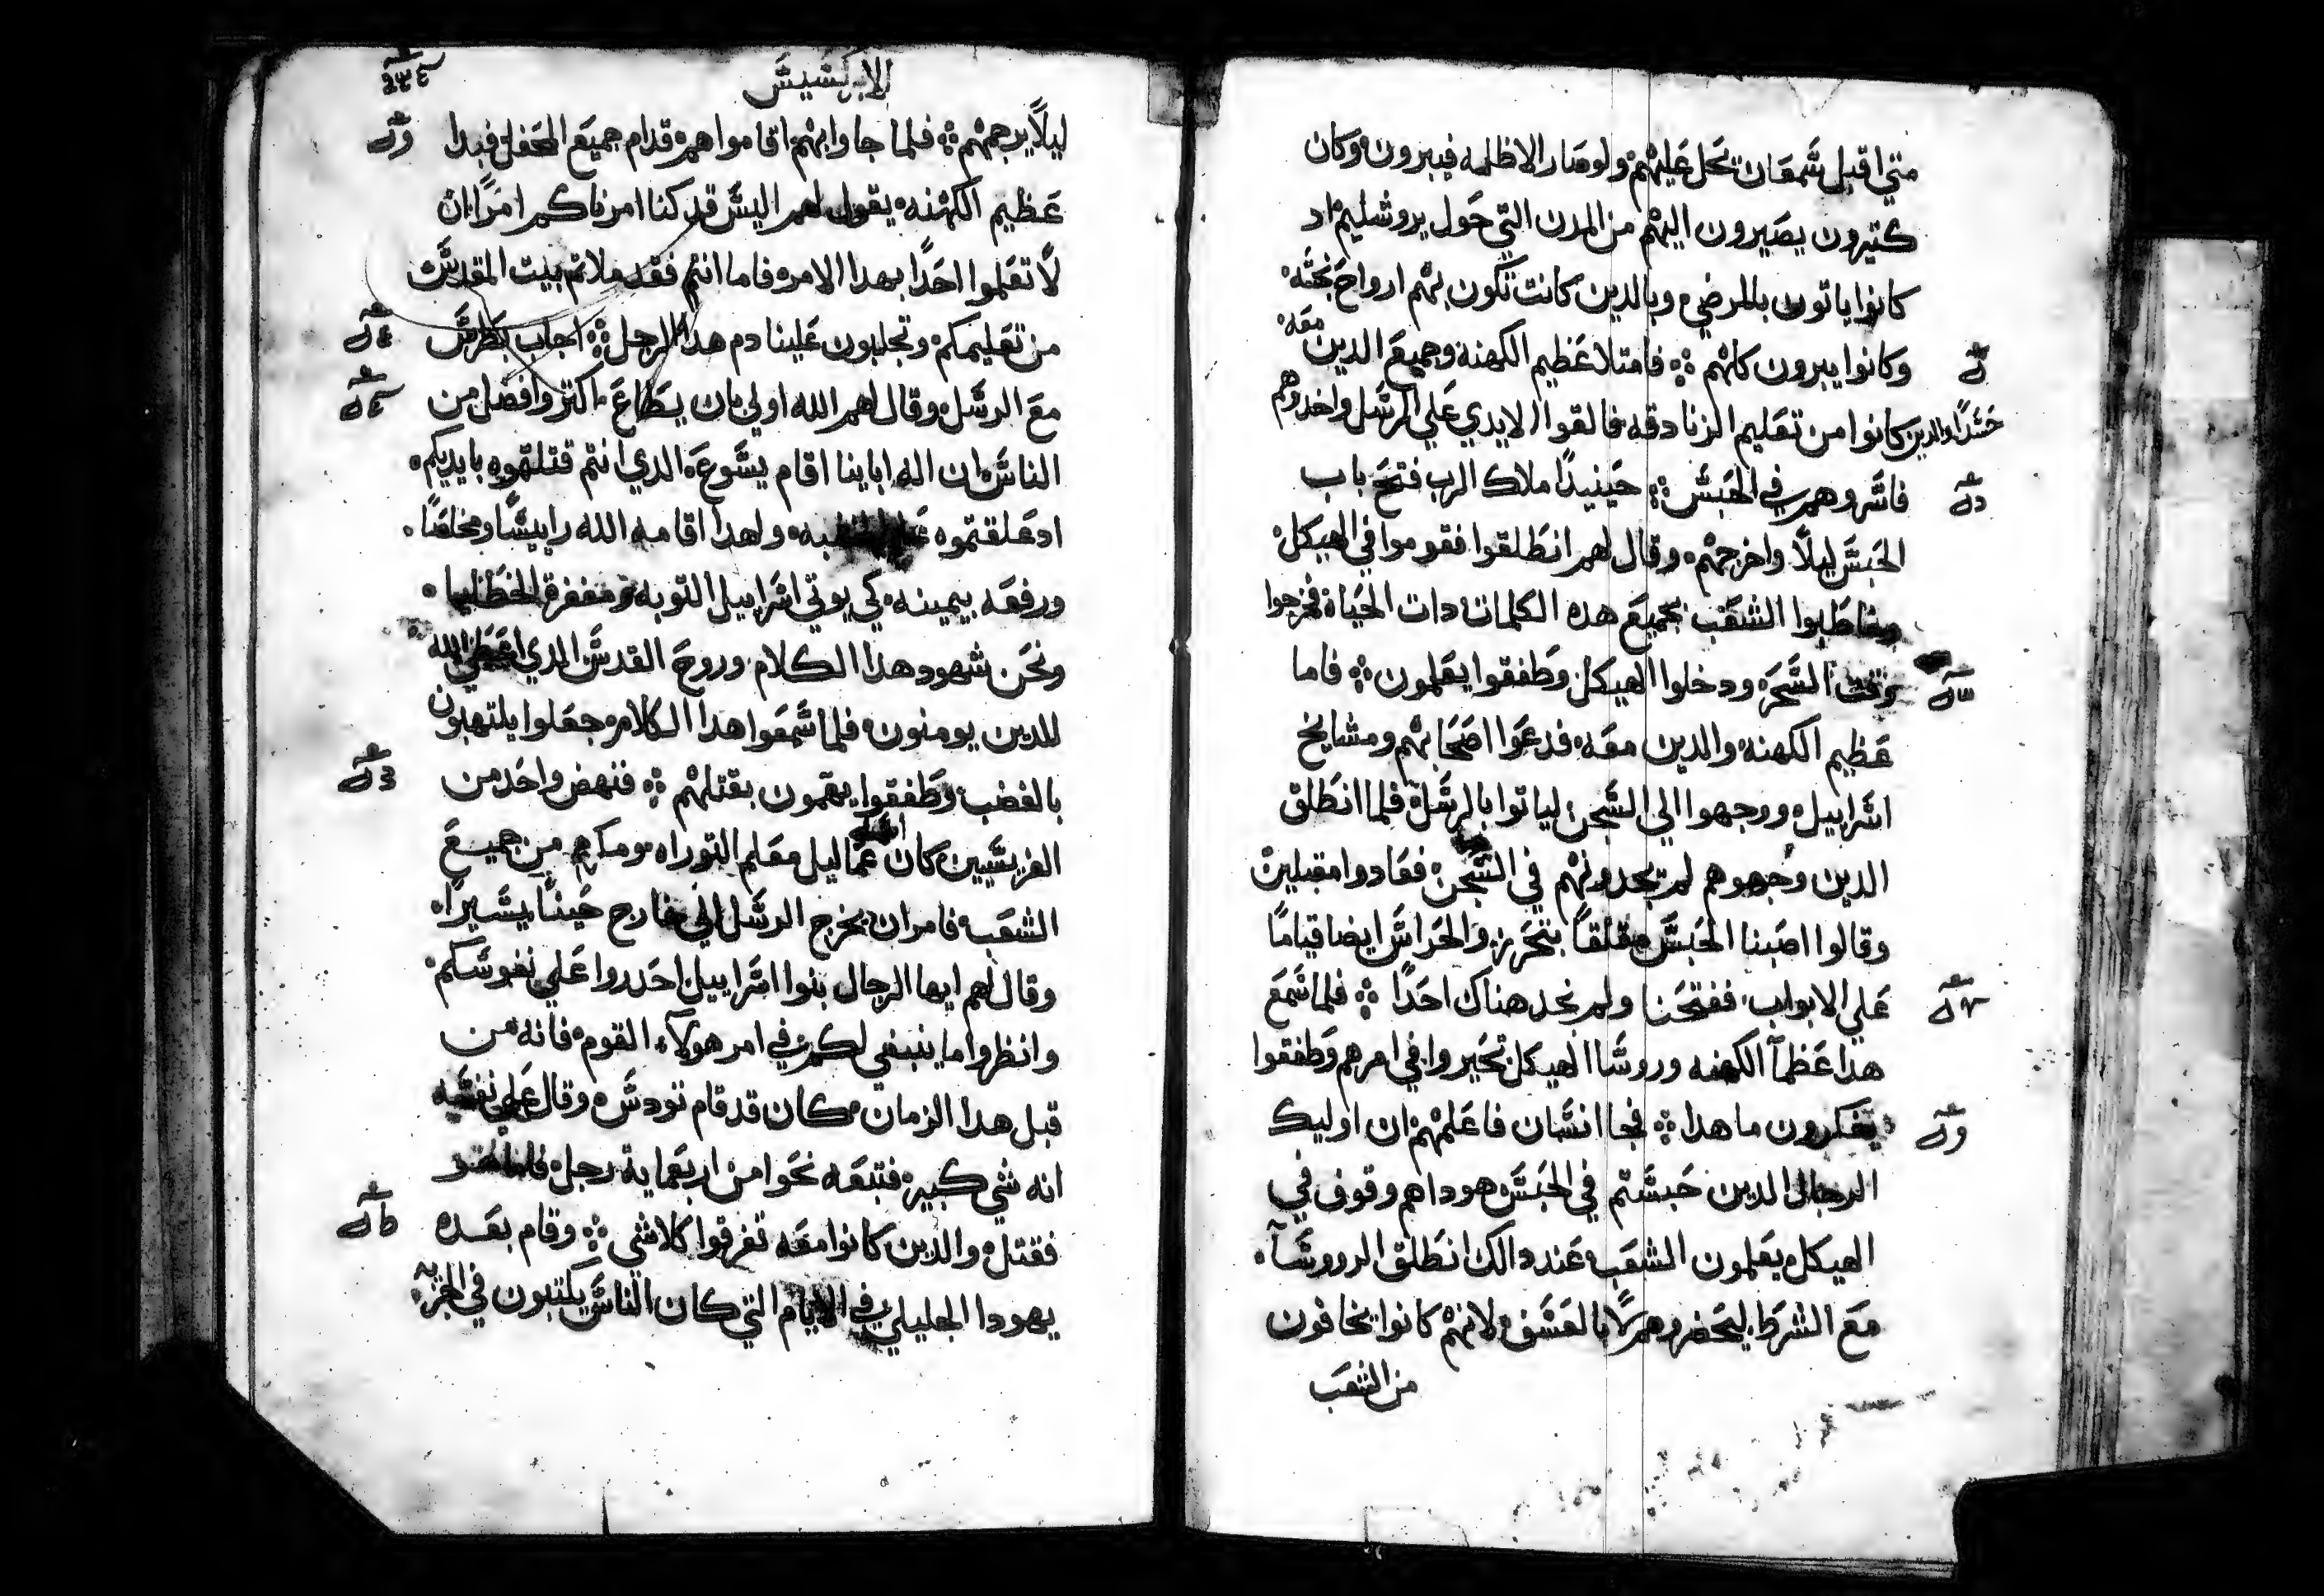 متي اقبل شمعان تحل عليهم ولو صار الاظلمه فيبرون وكان
كتيرون يصيرون اليهم من المدن التي حول يروشليم اد
كانوا ياتون بالمرضي وبالدين كانت تكون بهم ارواح نجثه
وكانوا يبرون كلهم فامتلا عظيم الكهنه وجميع الدين معه
حشدا والدين كانوا من تعليم الزنادقه فالقوا الايدي علي الرسل واخدوهم
فاسروهم في الحبس حينيدا ملاك الرب فتح باب
الحبس ليلا واخرجهم وقال لهم انطلقوا فقوموا في الهيكل
وخاطبوا الشعب بجميع هده الكلمات دات الحياة فخرجوا
وقت السحر ودخلوا الهيكل وطفقوا يعلمون فاما
عظيم الكهنه والدين معه فدعوا اصحابهم ومشايخ
اسراييل ووجهوا الي السجن لياتوا بالرسل فلما انطلق
الدين وجهوهم لم يجدونهم في السجن فعادوا مقبلين
وقالوا اصبنا الحبس مغلقا بتحرز والحراس ايضا قياما
علي الابواب ففتحنا ولم نجد هناك احدا فلما سمع
هدا عظما الكهنه وروسا الهيكل تحيروا في امرهم وطفقوا
يفكرون ما هدا فجا انسان فاعلمهم ان اوليك
الرجال الدين حبستم في الحبس هوداهم وقوف في
الهيكل يعلمون الشعب عند دالك انطلق الرووسا
مع الشرط ليحضروهم لا بالعسف لانهم كانوا يخافون
من الشعب
الابركسيس
ليلا يرجمهم فلما جاوا بهم اقاموهم قدام جميع المحفل فبدا
عظيم الكهنه يقول لهم اليس قد كنا امرناكم امرا ان
لا تعلموا احدا بهدا الامر فاما انتم فقد ملاتم بيت المقدس
من تعليمكم وتجلبون علينا دم هدا الرجل اجاب بطرس
مع الرسل وقال لهم الله اولي بان يطاع اكتر وافضل من
الناس ان اله اباينا اقام يسوع الدي انتم قتلتموه بايديكم
اد علقتموه علي الخشبه ولهدا اقامه الله راييسا ومخلصا
ورفعه بيمينه كي يوتي اسراييل التوبه ومغفرة الخطايا
ونحن شهود هدا الكلام وروح القدس الدي اعطي الله
للدين يومنون فلما سمعوا هدا الكلام جعلوا يلتهبون
بالغضب وطفقوا يهمون بقتلهم فنهض واحد من
الفريسيين كان اسمه عماليل معلم التوراه ومكرم من جميع
الشعب فامر ان يخرج الرسل الي خارج حينا يسيرا
وقال لهم ايها الرجال بنوا اسراييل احدروا علي نفوسكم
وانظروا ما ينبغي لكم في امر هولاء القوم فانه من
قبل هدا الزمان كان قد قام تودس وقال علي نفسه
انه شي كبير فتبعه نحوا من اربعماية رجل
فقتل والدين كانوا معه تفرقوا كلاشي وقام بعده
يهودا الجليلي في الايام التي كان الناس يكتبون في الجزيه